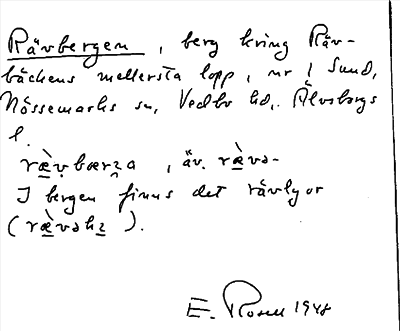 Rävbergen, berg kring Räv-
bäckens mellersta lopp, nr 1 Sund,
Nössemarks sn, Vedbo hd, Älvsborgs
l.
ræ̀vbærza, äv. ræ̀və-
I bergen finns det rävlyor
(ræ̀vəhz).
E. Rosell 1948